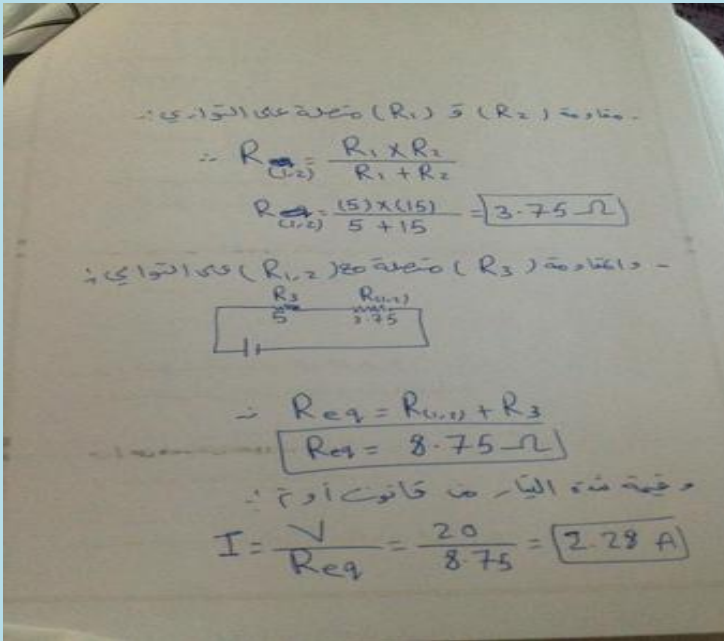 - مقاومة (R₂) و (R₁) متصلة على التوازي :-
∴ R(1,2) = R₁ × R₂ / R₁ + R₂
R(1,2) = (5)×(15) / 5 + 15 = 3.75 Ω
- والمقاومة (R₃) متصلة مع (R₁,₂) على التوالي :
R₃ R(1,2)
5 3.75
∴ Req = R(1,2) + R₃
Req = 8.75 Ω
وقيمة شدة التيار من قانون أوم :-
I = V / Req = 20 / 8.75 = 2.28 A